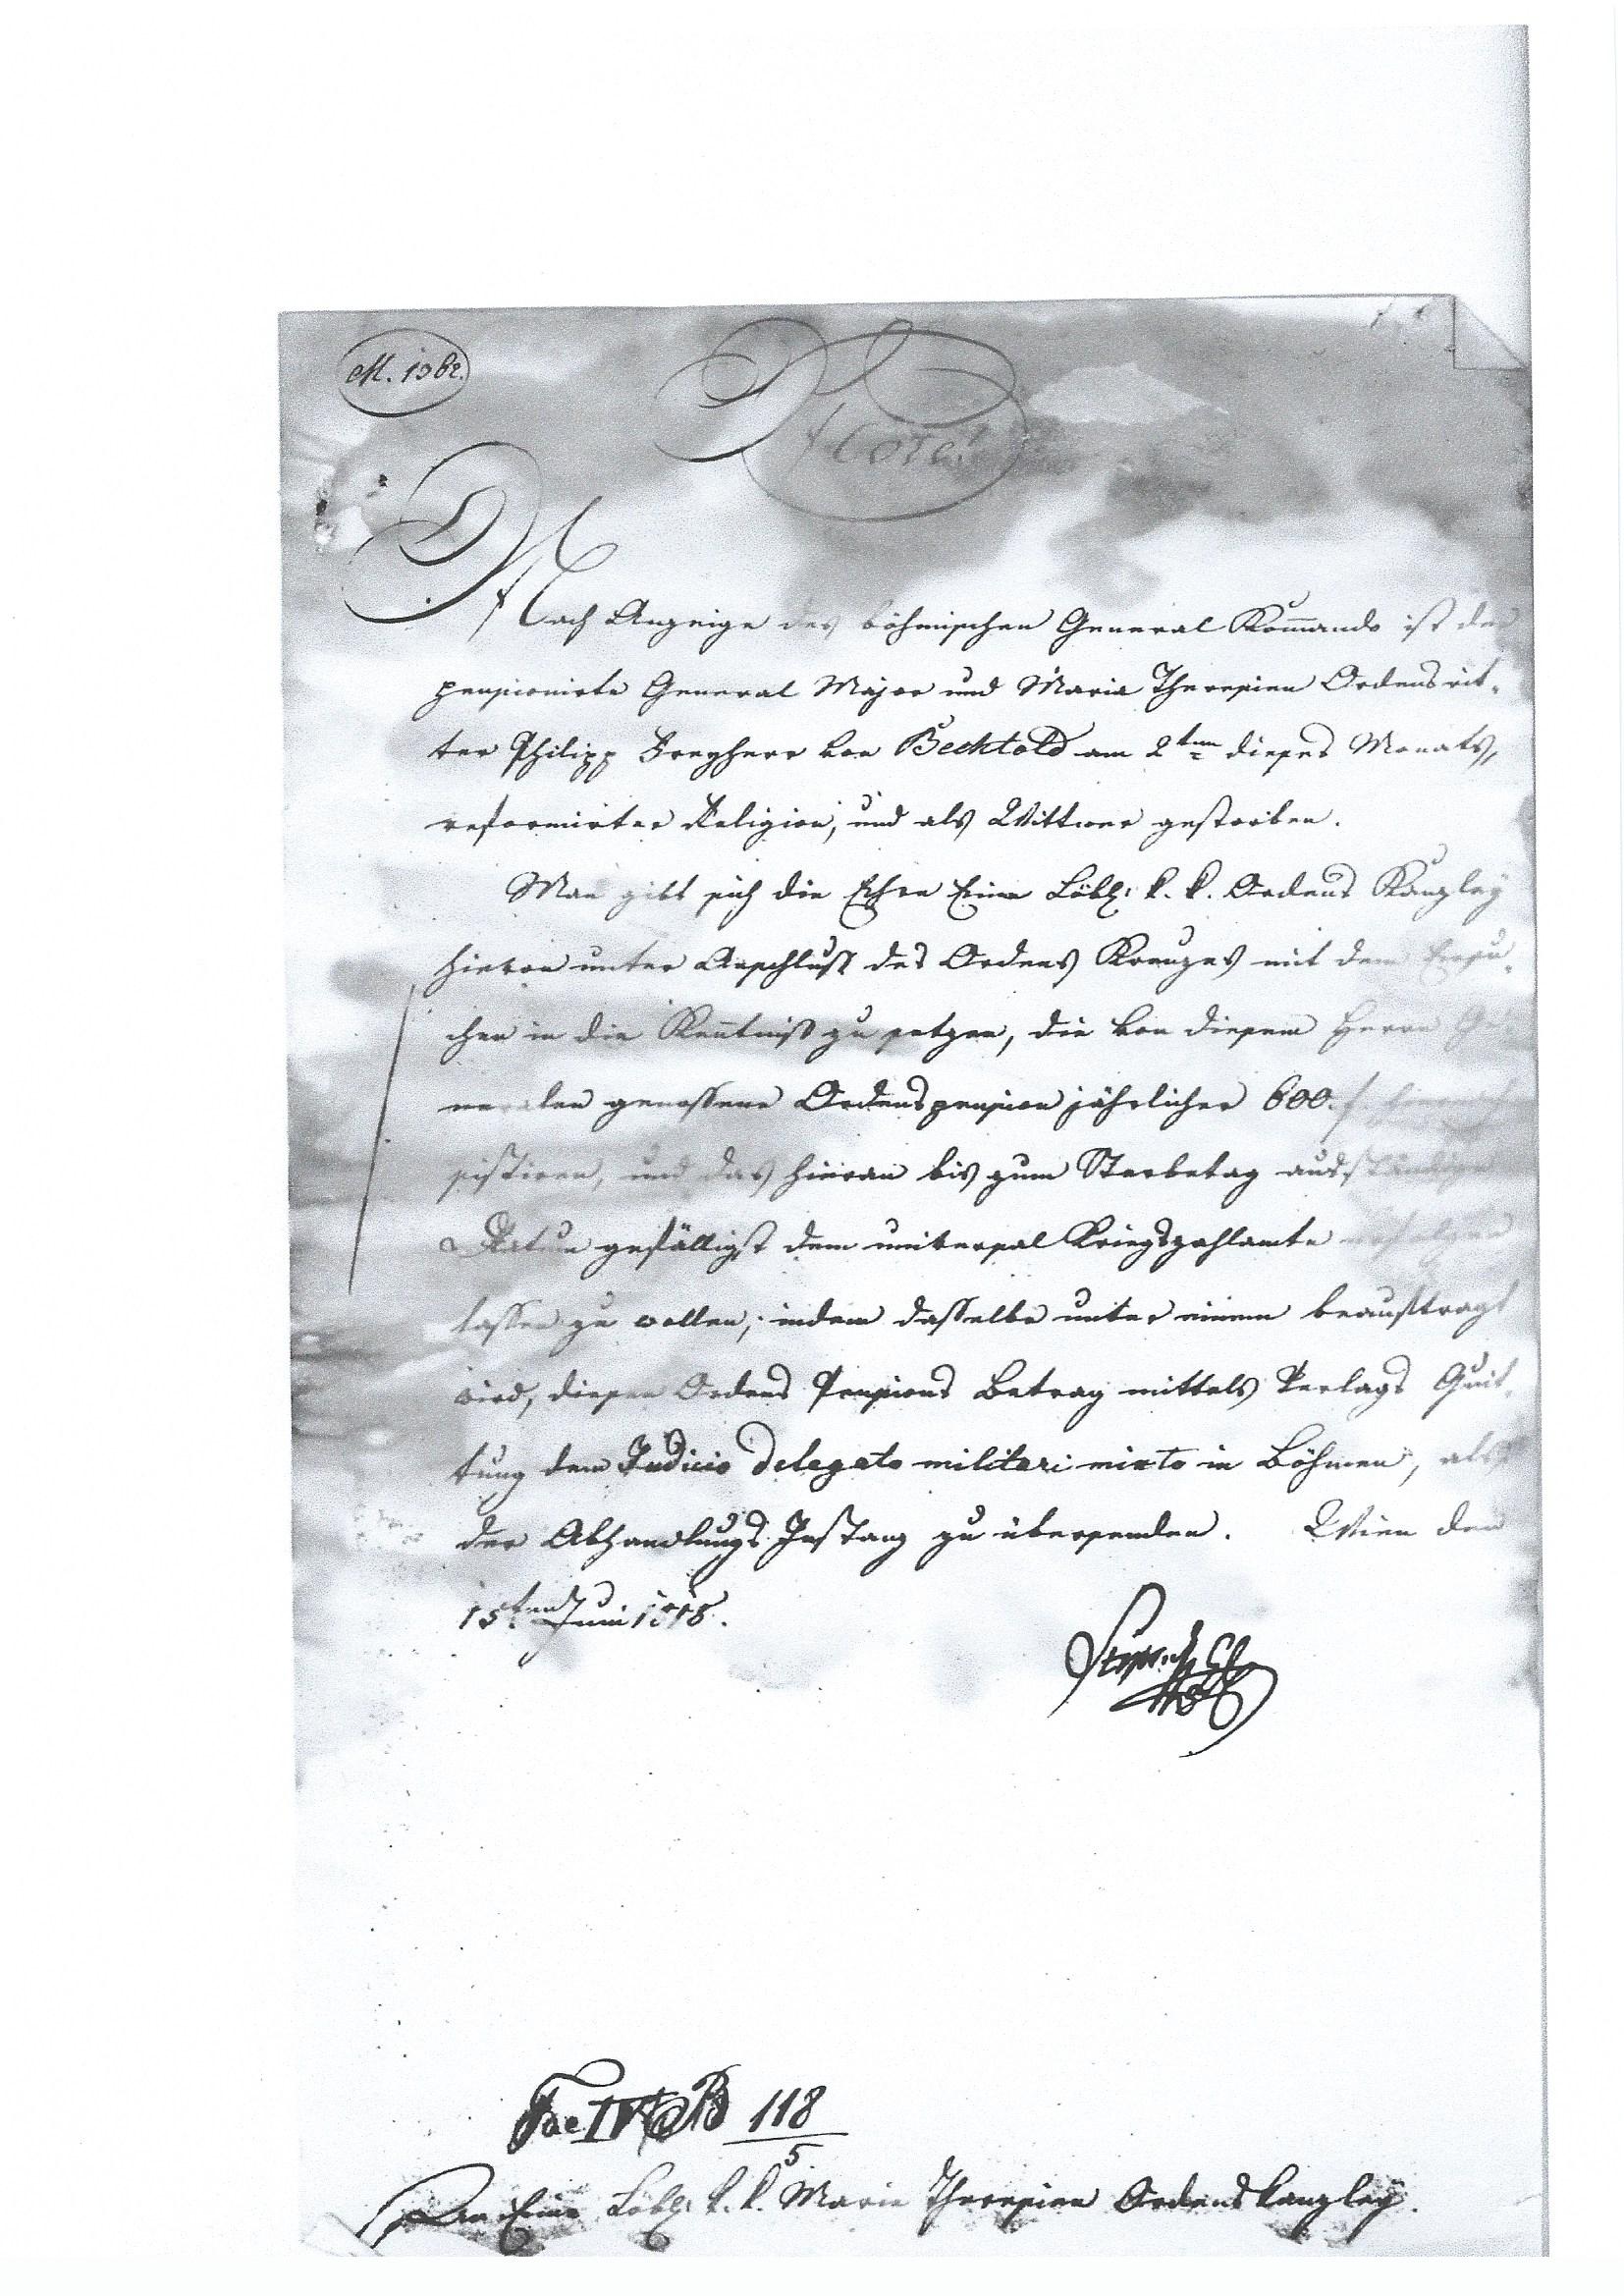 M. 1382.
Nota!
Nach Anzeige des böhmischen General Kom̄ando ist der
pensionirte General Major und Maria Theresien Ordensrit-
ter Philipp Freyherr von Bechtold am 2ten dieses Monats,
reformirter Religion, und als Wittwer gestorben.
Man gibt sich die Ehre Eine Löbl: k. k. Ordens Kanzley
hievon unter Anschluß des Ordens Kreuzes mit dem Ersu-
chen in die Keñtniß zu setzen, die von diesem Herrn Ge-
neralen genossene Ordenspension jährlicher 600 f
sistiren, und das hievon bis zum Sterbetag ausständige
Ratum gefälligst dem universal Kriegszahlamte erfolgen
lassen zu wollen; indem dasselbe unter einem beauftragt
wird, diesen Ordens Pensions Betrag mittels Verlags Quit-
tung dem Judicio delegato militari mixto in Böhmen, als
der Abhandlungs Instanz zu übersenden. Wien den
15ten Juni 1818.
IV B 118/5
An Eine Löbl: k. k. Marie Theresien Ordenskanzley.